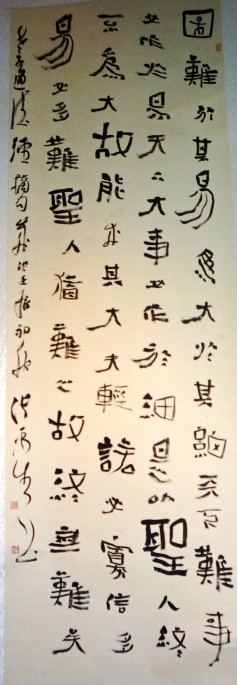 圖難於其易爲大於其細天下難事
必作於易天下大事必作於細是以聖人終
不爲大故能成其大夫輕諾必寡信多
易必多難聖人猶難之故終無難矣
老子道德經摘句